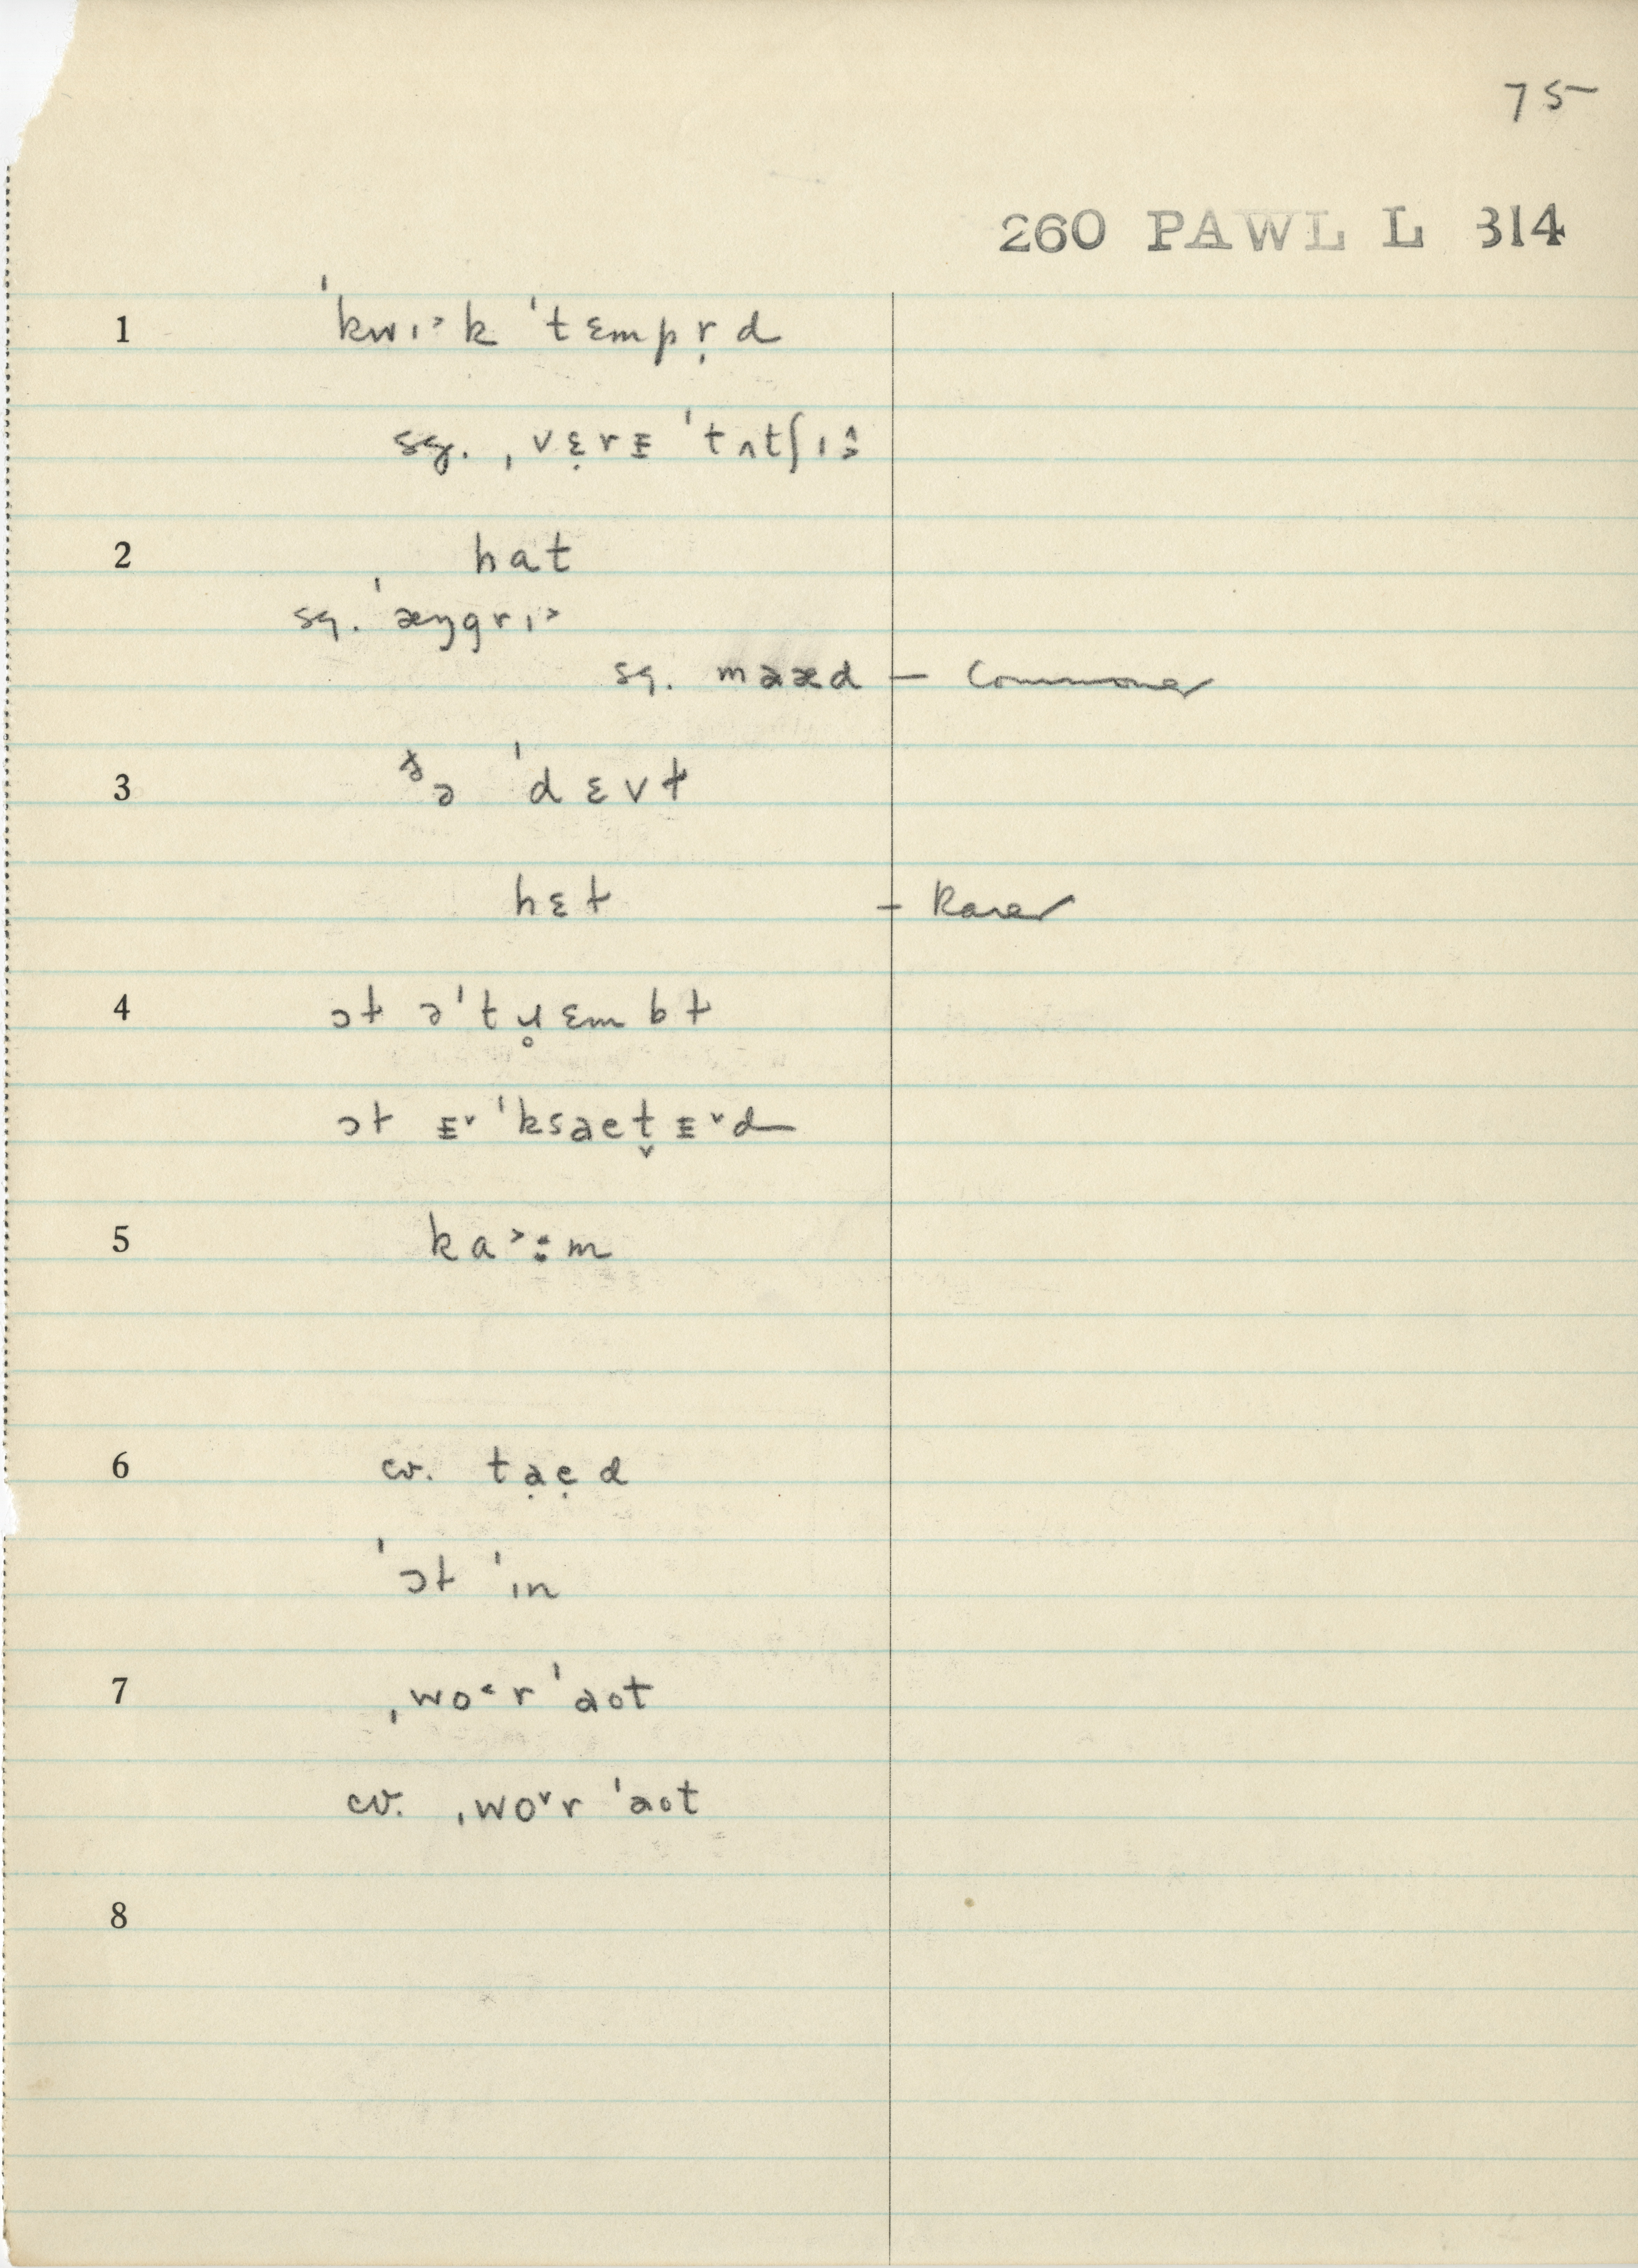 75
260 PAWL L 314
1 ˈkwɪ˃k ˈtɛmpr̩d
sg. ˌvɛ̣rᵻ ˈtʌtʃɪ
2 hat
sg. ˈæŋgrɪ˃
sg. maæd – Commoner
3 ə ˈdɛvɫ
hɛɫ – Rarer
4 ɔɫ əˈtɹ̥ɛmbɫ
ɔɫ ɪ˅ˈksaet̬ɪ˅d
5 ka˃:m
6 cv. tạẹd
ˈɔɫ ˈɪn
7 ˌwo˂r ˈaot
cv. ˌwo˅r ˈaot
8